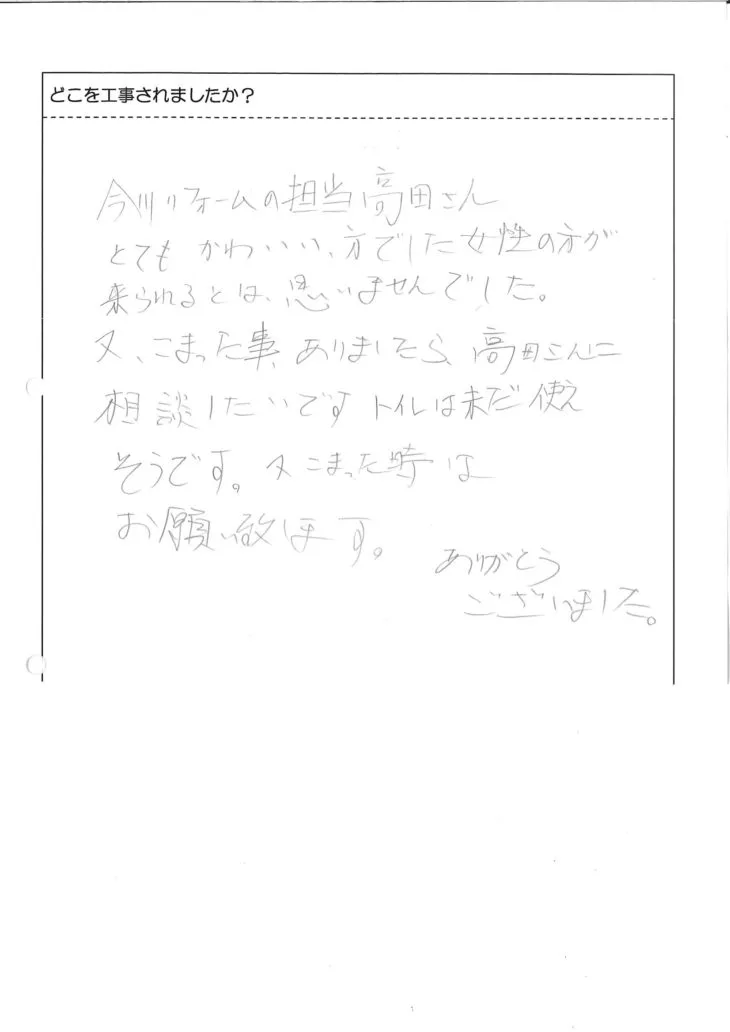 どこを工事されましたか？
今川リフォームの担当高田さん
とても かわいいい、方でした女性の方が
来られるとは、思いませんでした。
又、こまった事、ありましたら、高田さんに
相談したいです トイレは未だ使え
そうです。又こまった時は
お願い致します。
ありがとう
ございました。